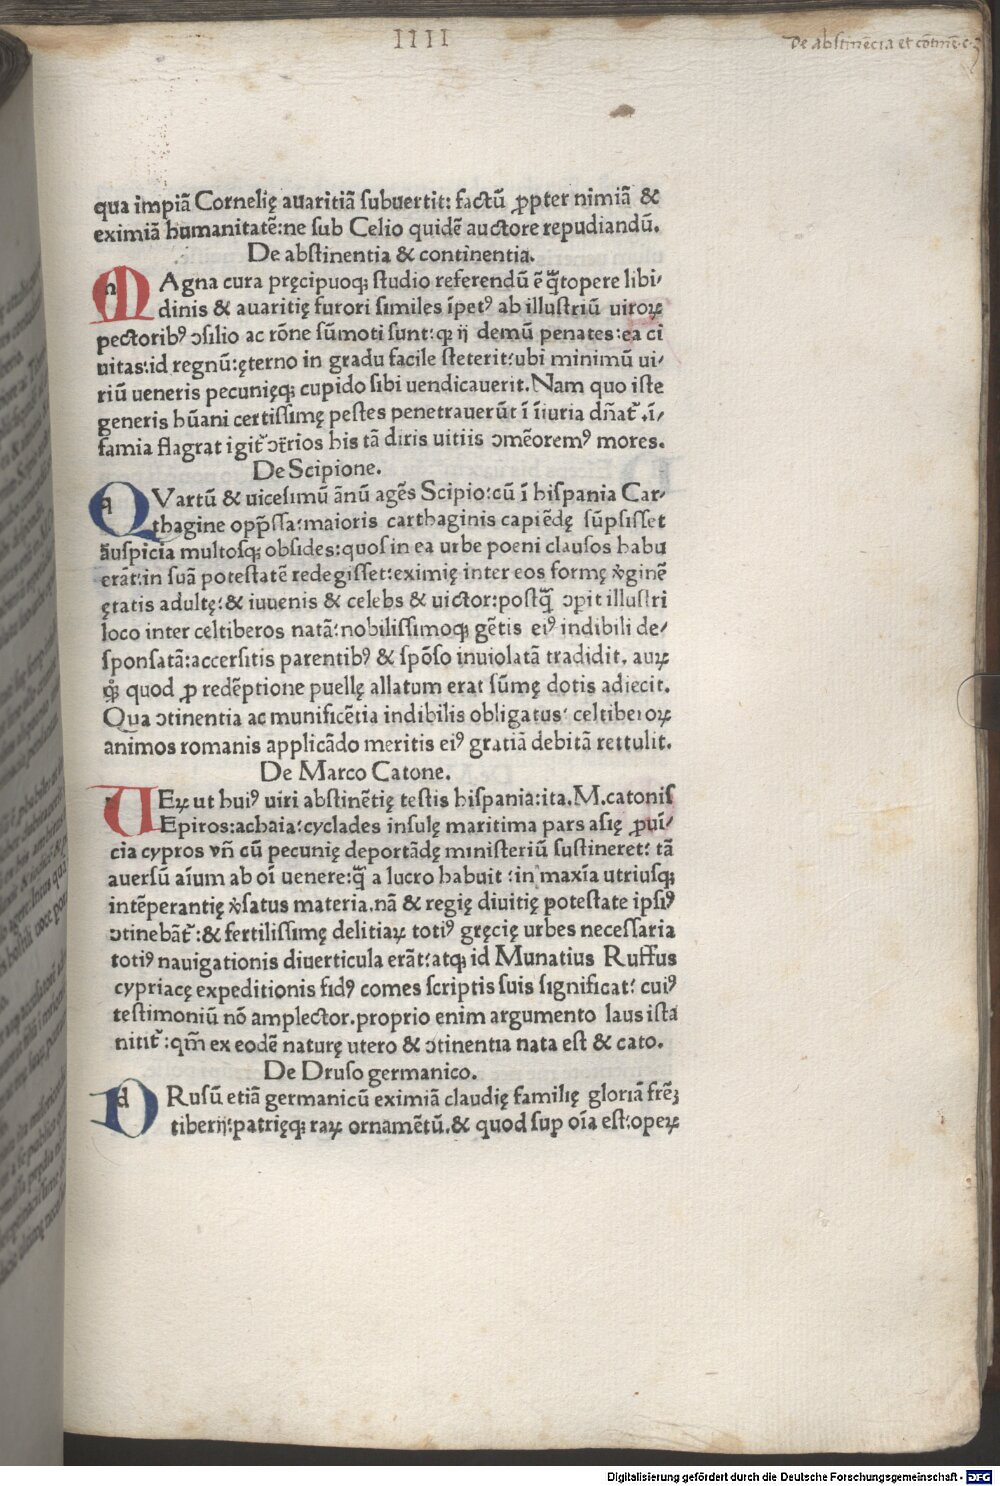 IIII
De abstinẽcia et cõtinẽ. c. 3
qua impiã Cornelię auaritiã subuertit: factũ ꝓpter nimiã &
eximiã humanitatẽ: ne sub Celio quidẽ auctore repudiandũ.
De abstinentia & continentia.
MAgna cura pręcipuoqȝ studio referendũ ẽ q̃topere libi/
dinis & auaritię furori similes ĩpetꝰ ab illustriũ uiroꝝ
pectoribꝰ ↄsilio ac rõne sũmoti sunt: qꝛ ij demũ penates: ea ci
uitas: id regnũ: ęterno in gradu facile steterit: ubi minimũ ui/
riũ ueneris pecunięqȝ cupido sibi uendicauerit. Nam quo iste
generis hũani certissimę pestes penetrauerũt ĩ ĩiuria dñat᷑. ĩ/
famia flagrat igit᷑ ↄt̃rios his tã diris uitiis ↄmẽoremꝰ mores.
De Scipione.
QVartũ & uicesimũ ãnũ agẽs Scipio: cũ ĩ hispania Car/
thagine opp̃ssa: maioris carthaginis capiẽdę sũpsisset
auspicia multosqȝ obsides: quos in ea urbe poeni clausos habu
erãt: in suã potestatẽ redegisset: eximię inter eos formę v̊ginẽ
ętatis adultę: & iuuenis & celebs & uictor: postq̃ ↄpit illustri
loco inter celtiberos natã: nobilissimoqȝ gẽtis eiꝰ indibili de/
sponsatã: accersitis parentibꝰ & spõso inuiolatã tradidit. auꝝ
qͦqȝ quod ꝓ redẽptione puellę allatum erat sũmę dotis adiecit.
Qua ↄtinentia ac munificẽtia indibilis obligatus: celtiberoꝝ
animos romanis applicãdo meritis eiꝰ gratiã debitã rettulit.
De Marco Catone.
UEꝝ ut huiꝰ uiri abstinẽtię testis hispania: ita. M. catonis
Epiros: achaia: cyclades insulę maritima pars asię ꝓui/
cia cypros vñ cũ pecunię deportãdę ministeriũ sustineret: tã
auersũ aĩum ab oĩ uenere: q̃ a lucro habuit: in maxĩa utriusqȝ
intẽperantię v̊satus materia. nã & regię diuitię potestate ipsiꝰ
ↄtinebãt᷑: & fertilissimę delitiaꝝ totiꝰ gręcię urbes necessaria
totiꝰ nauigationis diuerticula erãt: atqȝ id Munatius Ruffus
cypriacę expeditionis fidꝰ comes scriptis suis significat: cuiꝰ
testimoniũ nõ amplector. proprio enim argumento laus ista
nitit᷑: qm̃ ex eodẽ naturę utero & ↄtinentia nata est & cato.
De Druso germanico.
DRusũ etiã germanicũ eximiã claudię familię gloriã frẽȝ
tiberij: patrięqȝ raꝝ ornamẽtũ. & quod suꝑ oĩa est: opeꝝ
Digitalisierung gefördert durch die Deutsche Forschungsgemeinschaft - DFG